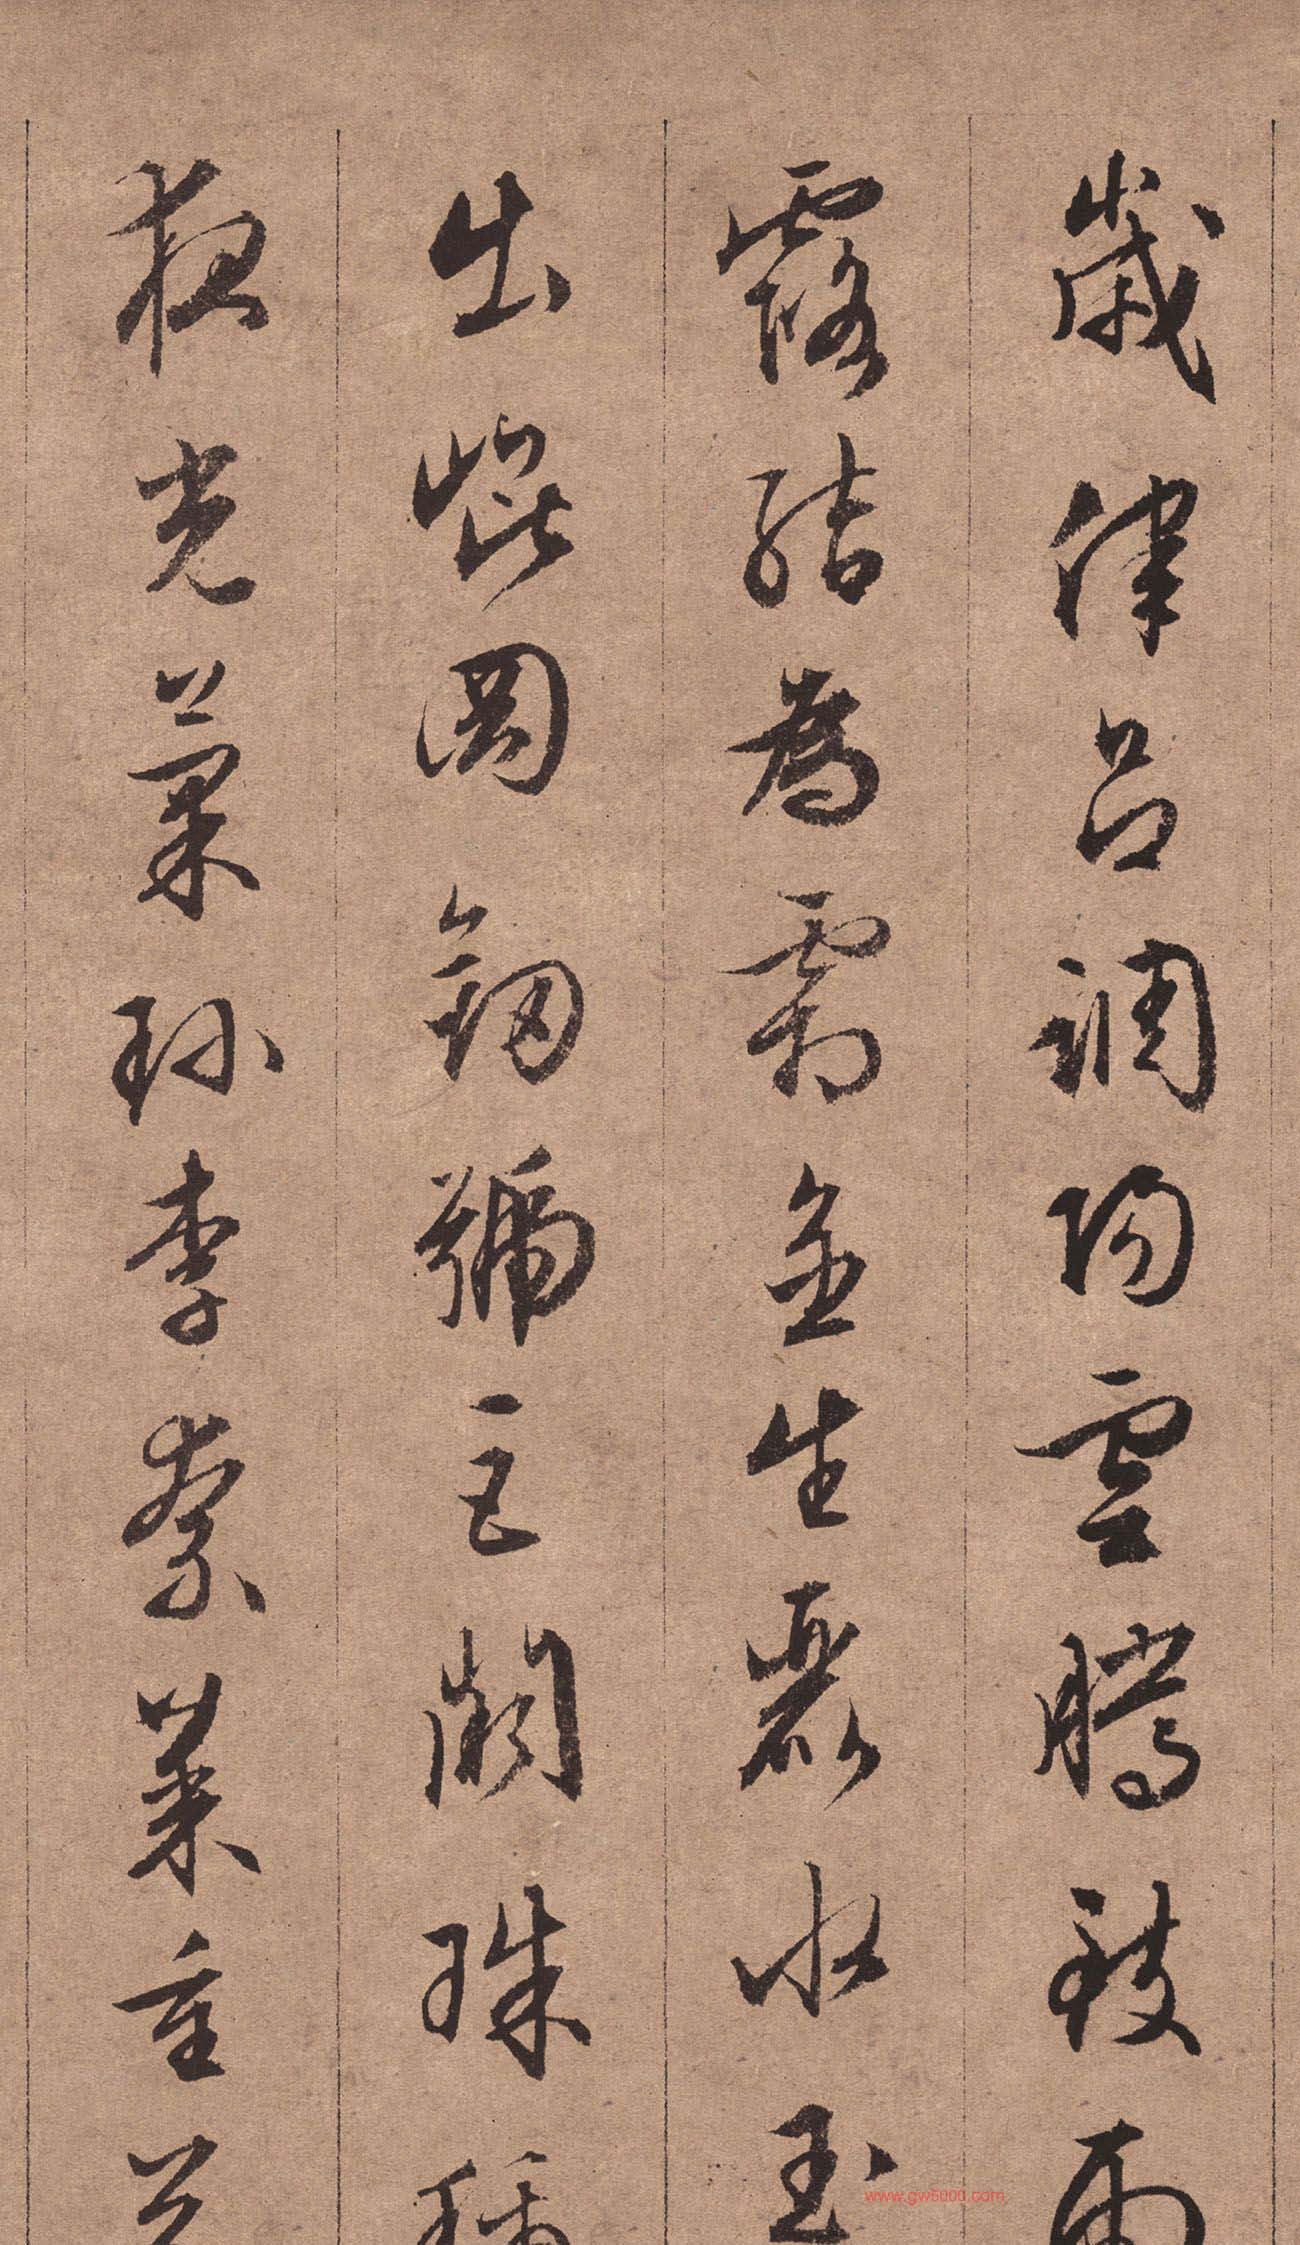 歲律呂調陽雲騰致雨
露結為霜金生麗水玉
出崐岡劎號巨闕珠稱
夜光菓珎李柰菜重芥
www.gw5000.com